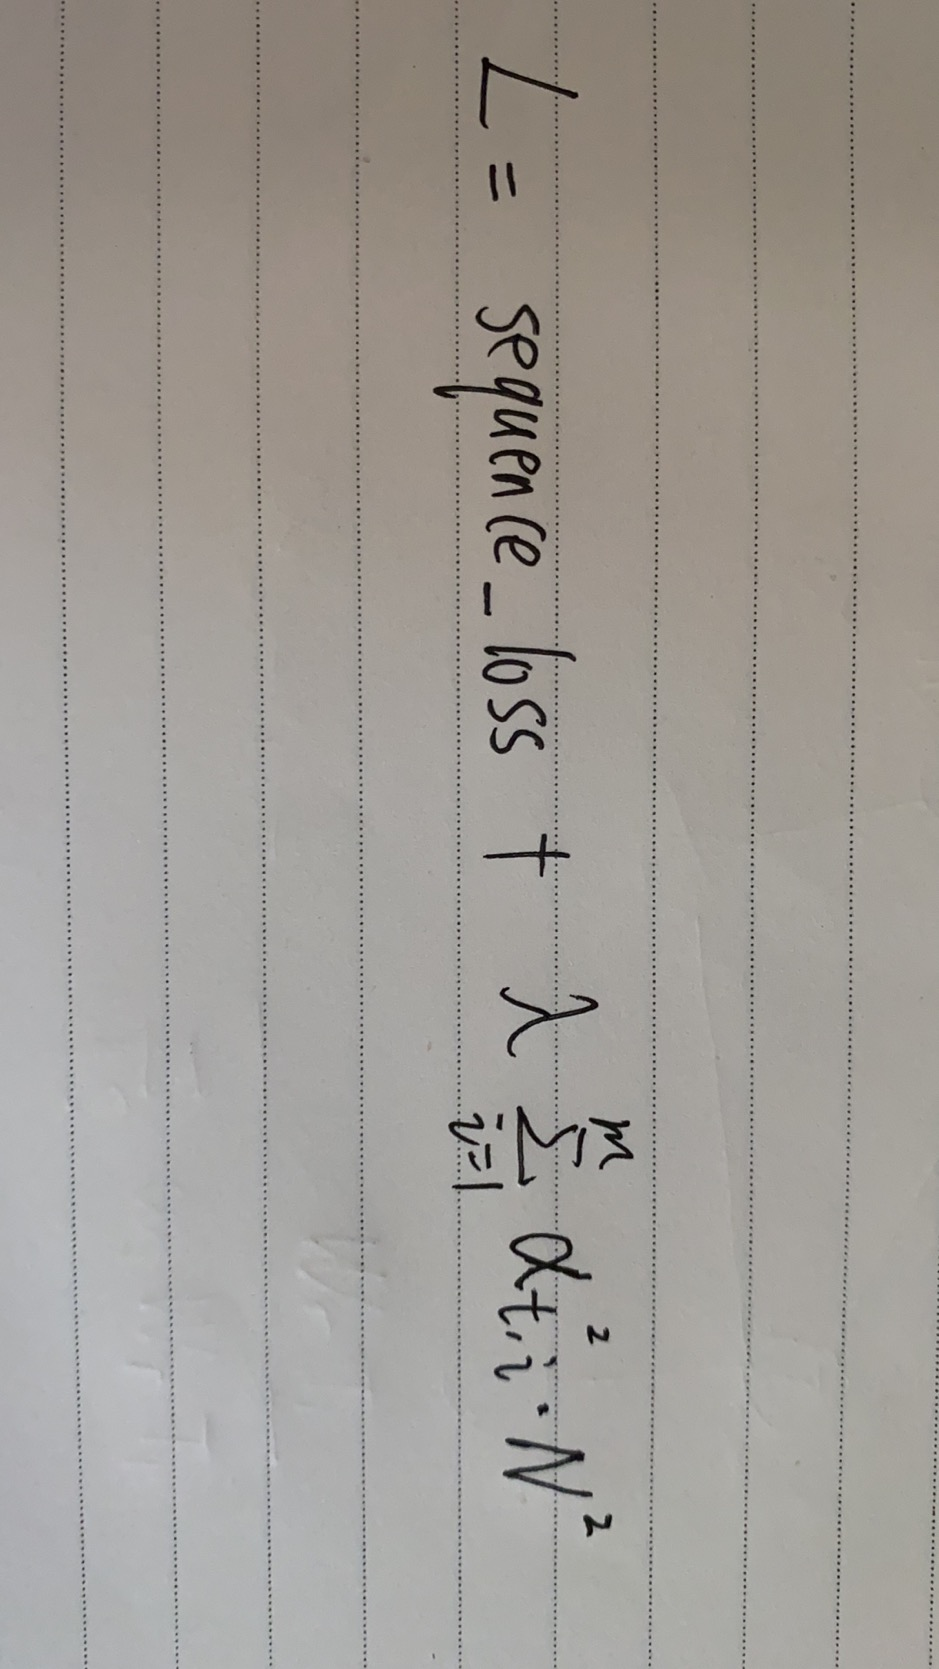 L = sequence_loss + λ ∑_{i=1}^{m} α_{t,i}^2 · N^2